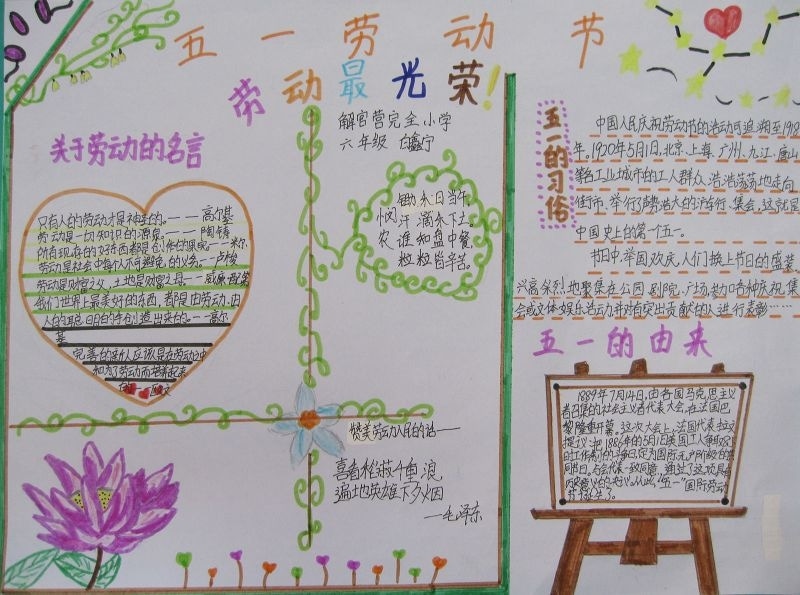 五一劳动节
劳动最光荣!
解官营完全小学
六年级 白鑫宁
关于劳动的名言
只有人的劳动才是神圣的。——高尔基
劳动是一切知识的源泉。——陶铸
所有现存的好东西都是创作的果实。——米尔
劳动是社会中每个人不可避免的义务。——卢梭
劳动是财富之父，土地是财富之母。——威廉·配第
我们世界上最美好的东西，都是由劳动、由
人的聪明的手创造出来的。——高尔
基
完善的新人应该是在劳动之中
和为了劳动而培养起来
锄禾日当午
汗滴禾下土。
谁知盘中餐
粒粒皆辛苦。
赞美劳动人民的诗——
喜看稻菽千重浪
遍地英雄下夕烟
——毛泽东
五一的习俗
中国人民庆祝劳动节的活动可追溯至1918
年。1920年5月1日，北京、上海、广州、九江、唐山
等各工业城市的工人群众浩浩荡荡地走向
街市、举行了声势浩大的游行、集会，这就是
中国史上的第一个五一。
节日中，举国欢庆，人们换上节日的盛装，
兴高采烈地聚集在公园、剧院、广场，参加各种庆祝集
会或文体娱乐活动，并对有突出贡献的人进行表彰……
五一的由来
1889年7月14日，由各国马克思主义
者召集的社会主义者代表大会，在法国巴
黎隆重开幕。这次大会上，法国代表拉文
提议：把1886年的5月1日美国工人争取八
时工作制的斗争日，定为国际无产阶级的共
同节日。与会代表一致同意，通过了这项具有
历史意义的决议。从此，“五一”国际劳动
节诞生了。